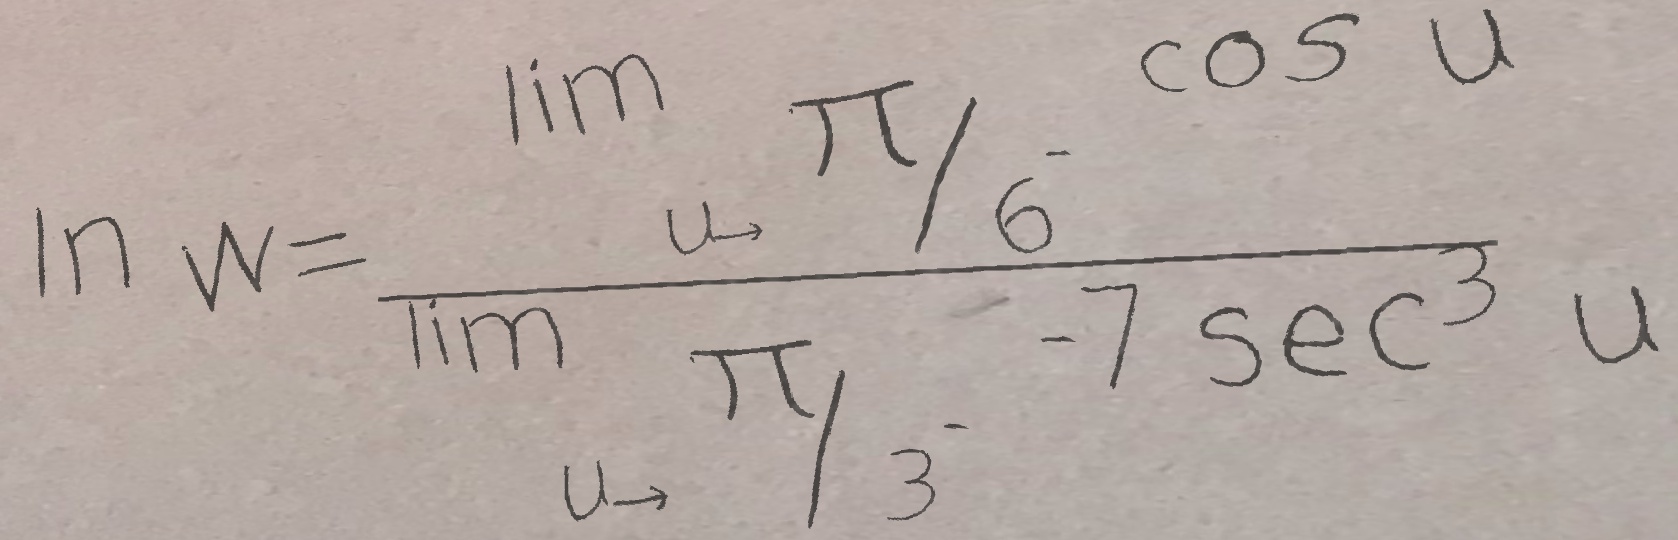 ln w = \frac{\lim_{u \to \pi/6^-} \cos u}{\lim_{u \to \pi/3^-} -7 \sec^3 u}